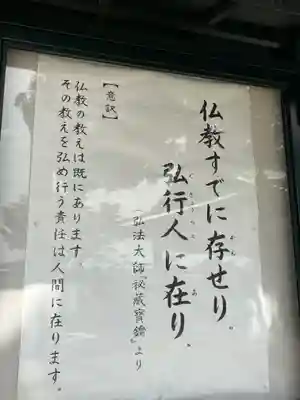 仏教すでに存せり。
弘行人に在り。
(弘法大師『秘蔵寶鑰』より
【意訳】
仏教の教えは既にあります。
その教えを弘め行う責任は人間に在ります。